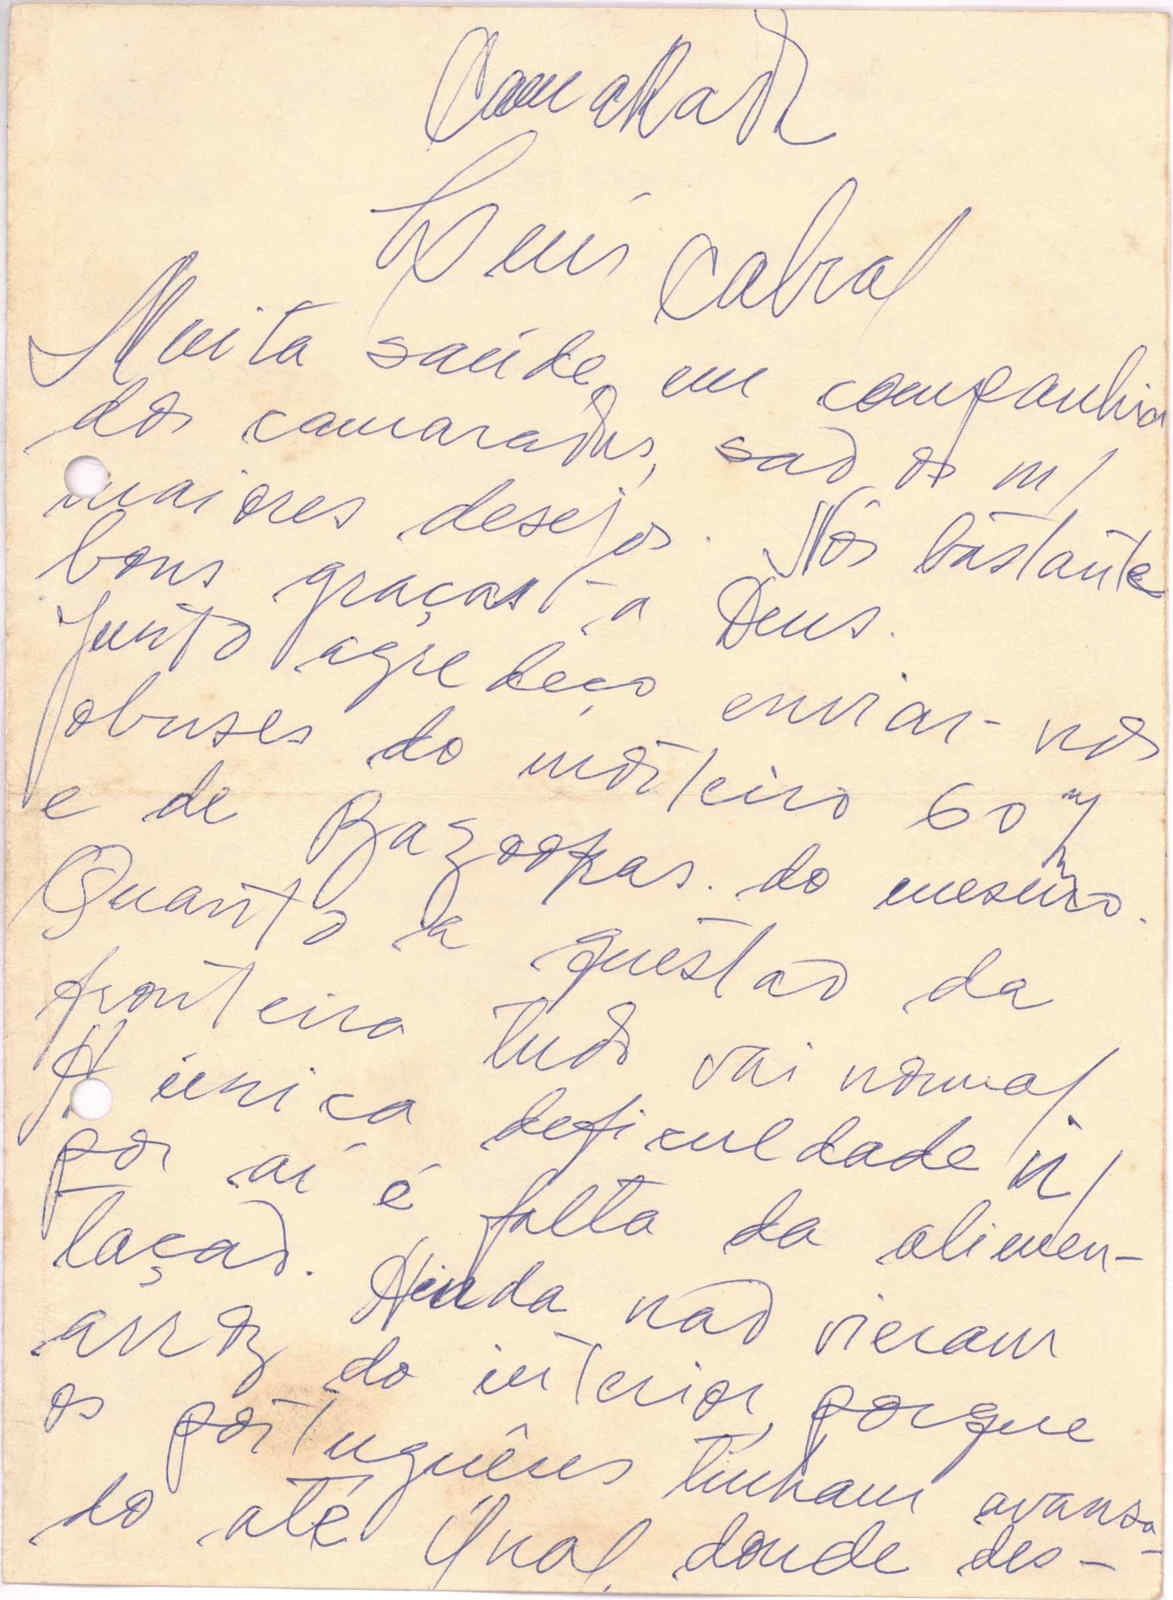 Camarada
Luís Cabral
Muita saúde, em companhia
dos camaradas, são os m/
maiores desejos. Nós bastante
bons graças à Deus.
Junto agredeço enviar-nos
obuses do morteiro 60 m/m
e de Bazookas do mesmo.
Quanto a questão da
fronteira tudo vai normal
A única deficuldade n/
por aí é falta da alimen-
tação. Ainda não vieram
arroz do interior, porque
os portuguêses tinham avansa-
do até donde des-